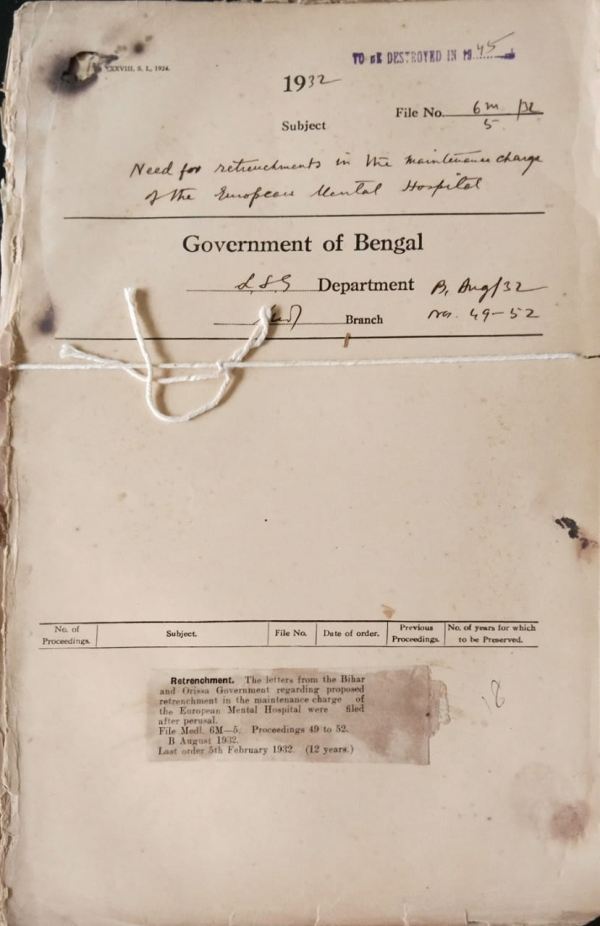 XXVIII, S. I., 1924.
TO BE DESTROYED IN 1945
1932
File No. 6m/32
5
Subject
Need for retrenchments in the maintenance charge
of the European Mental Hospital
Government of Bengal
L.S.G Department B, Aug/32
Branch nos. 49-52
No. of Proceedings. Subject. File No. Date of order. Previous Proceedings. No. of years for which to be Preserved.
Retrenchment. The letters from the Bihar
and Orissa Government regarding proposed
retrenchment in the maintenance charge of
the European Mental Hospital were filed
after perusal.
File Medl. 6M—5. Proceedings 49 to 52.
B August 1932.
Last order 5th February 1932. (12 years.)
18